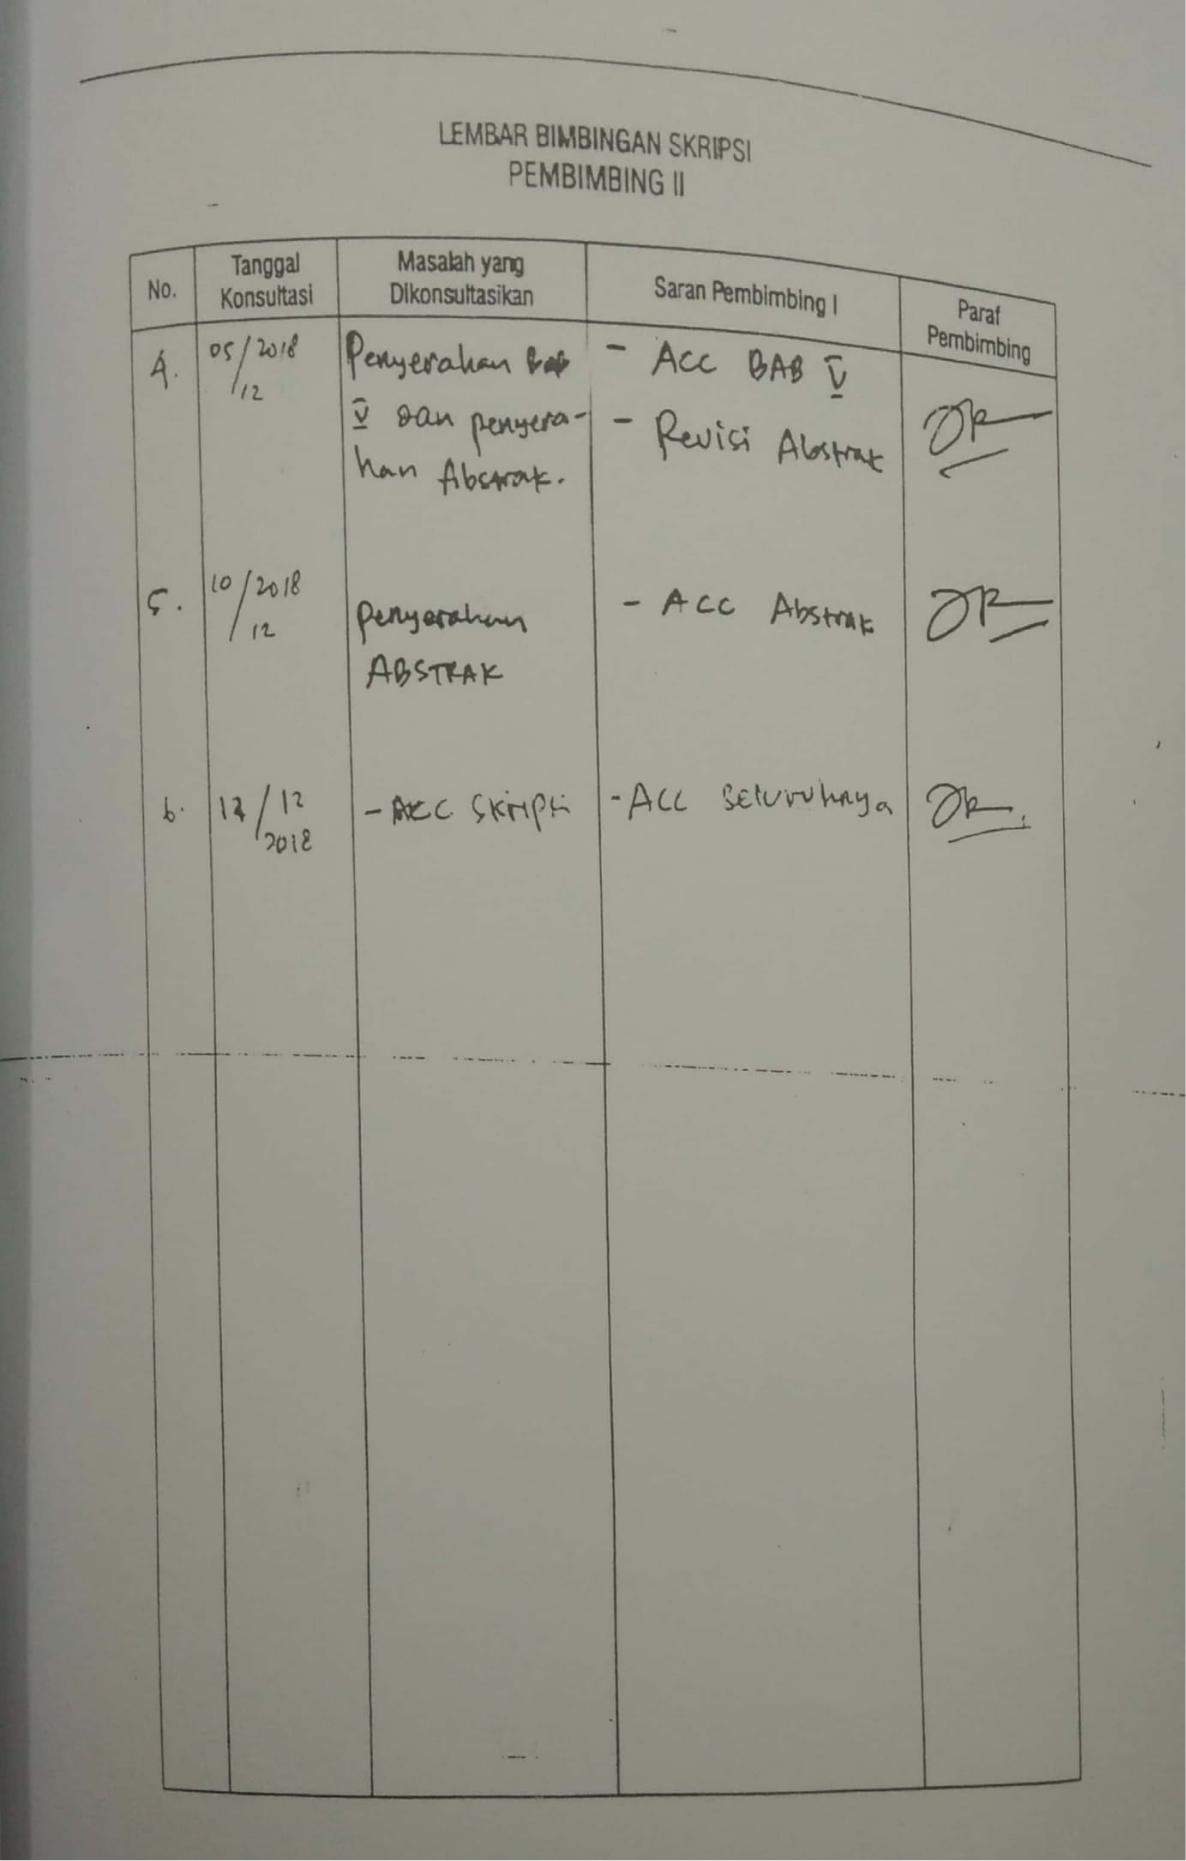 LEMBAR BIMBINGAN SKRIPSI
PEMBIMBING II
No.
Tanggal
Konsultasi
Masalah yang
Dikonsultasikan
Saran Pembimbing I
Paraf
Pembimbing
4.
05/2018
12
Penyerahan Bab
V dan penyera-
han Abstrak.
- ACC BAB V
- Revisi Abstrak
5.
10/2018
12
Penyerahan
ABSTRAK
- ACC Abstrak
6.
/12
2018
- ACC Skripsi
- ACC Seluruhnya